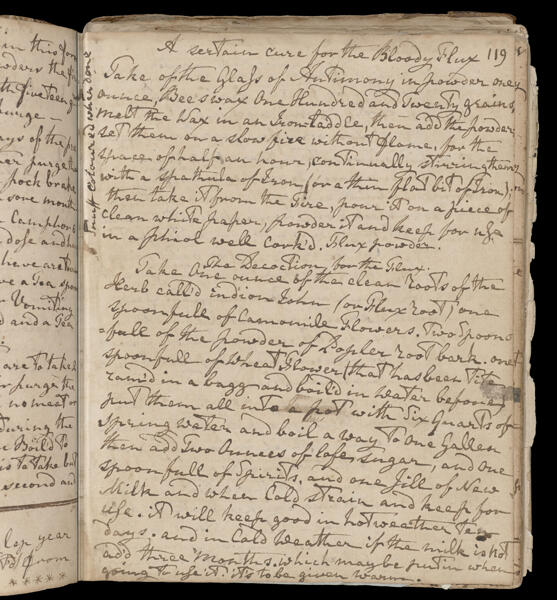 A sertain cure for the Bloody Flux 119
Take of the Glass of Antimony in powder oney
ounce, Bees wax One Hundred and Twenty grains,
melt the Wax in an Iron Laddle, then add the powder
set them on a slow fire without flame, for the
space of half an hour, continually stirring them
with a spathula of Iron (or a thin flat bit of Iron),
then take it from the Fire, pour it on a piece of
clean white paper, powder it and keep for use
in a phiol well Cork'd. Flux powder.
Snuff Coloured when done
The Decoction for the Flux.
Take One ounce of the clean roots of the
Herb call'd indion John (or Flux root) one
spoonfull of Camomile Flowers. Two Spoons
full of the powder of Popler root bark. one
spoonfull of Wheat Flower (that has been
in a bagg and boil'd in Water before)
put them all into a pot with Six Quarts of
Spring water and boil a way to One Gallen
then add Two Ounces of lofe sugar, and one
spoonfull of Spirits. and one Jill of New
Milk and when Cold Strain and keep for
use. it will keep good in hot weather Ten
days. and in Cold Weather if the milk is not
add three months. which may be put in when
going to use it. it's to be given warm.
in this
ders the
fifteen
urge
ays of the
purge
sore month
Camphor
dose and
a Tea
Vomiting
and a Tea
are to take
purge the
no meat or
during the
Boild
is to take but
second and
Lep year
from